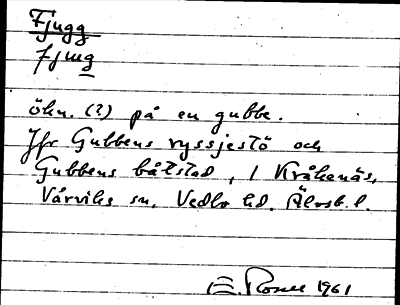 Fjugg
fjug
ökn. (?) på en gubbe.
Jfr Gubbens ryssjestö och
Gubbens båtstad, i Kråkenäs,
Vårviks sn, Vedbo hd. Älvsb. l.
E. Rosell 1961